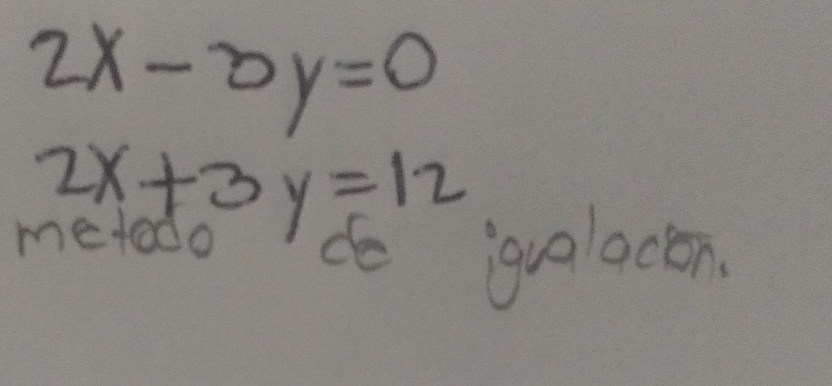 2x - 3y = 0
2x + 3y = 12
metodo de igualacion.